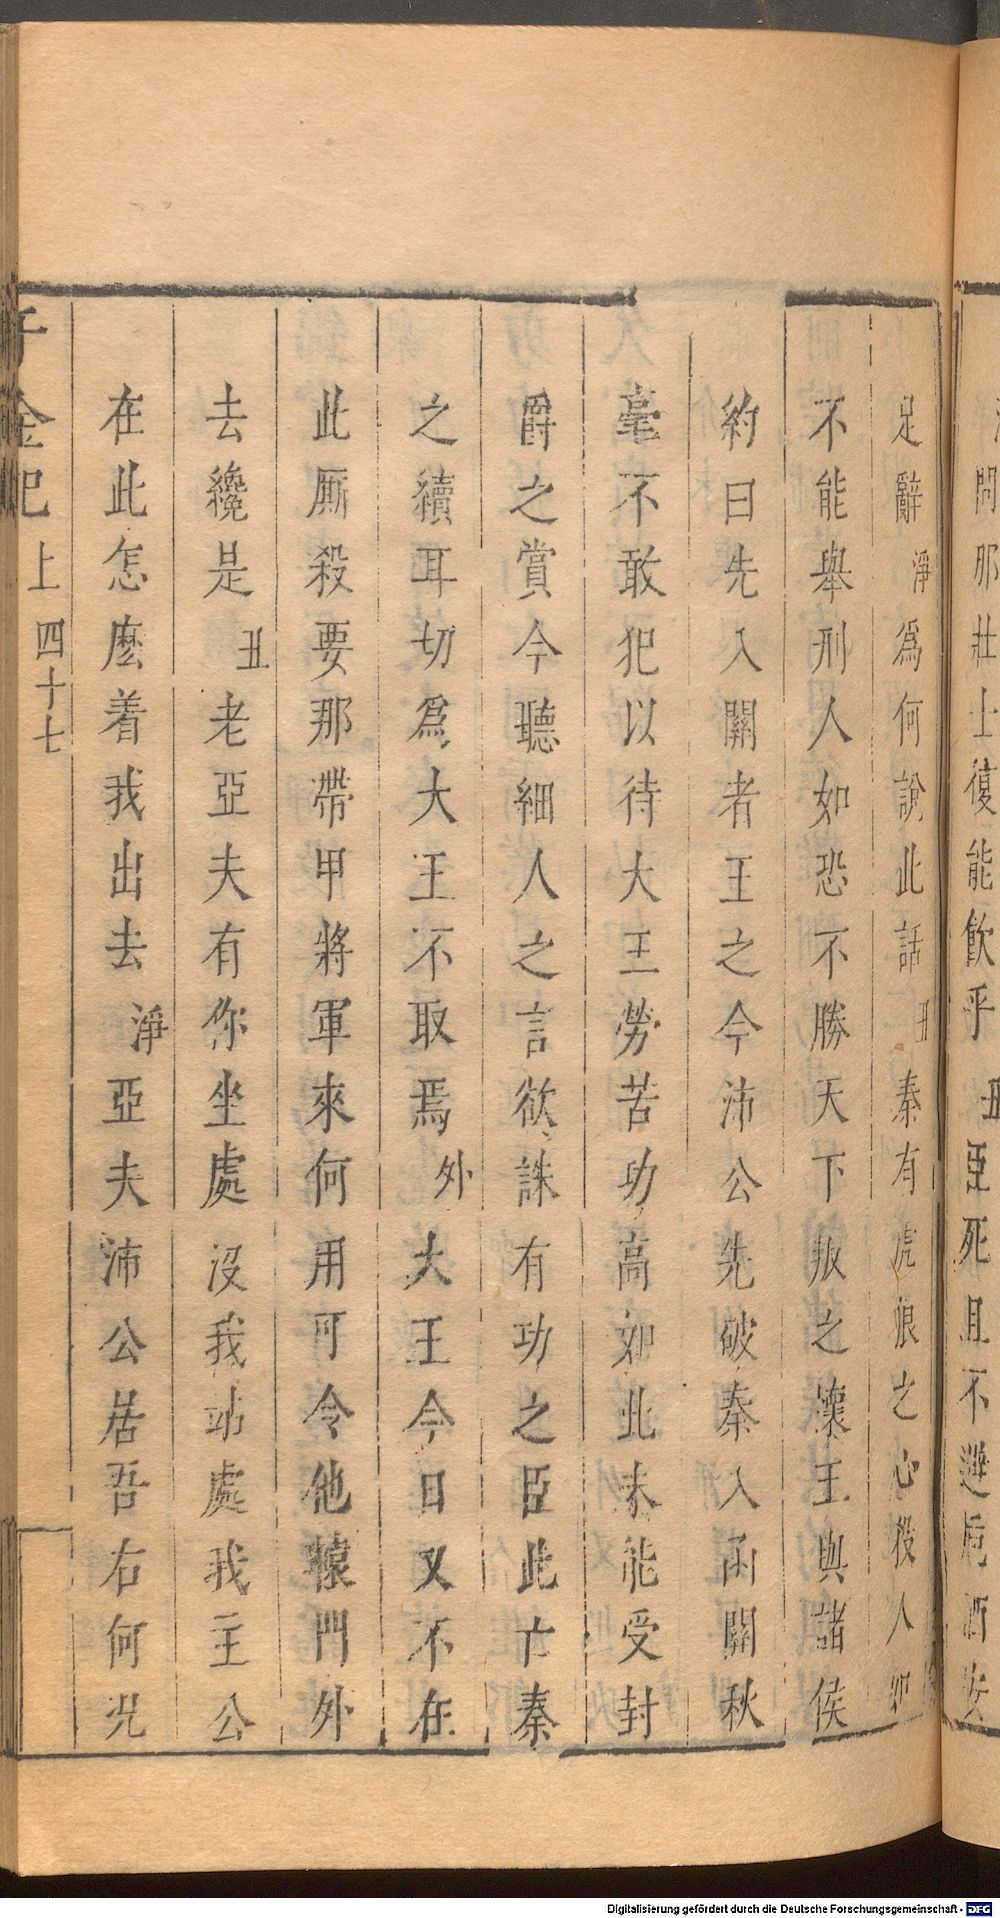 問那壯士復能飲乎丑臣死且不避卮酒安
足辭淨為何說此話丑秦有虎狼之心殺人如
不能舉刑人如恐不勝天下叛之懷王與諸侯
約曰先入關者王之今沛公先破秦入函關秋
毫不敢犯以待大王勞苦功高如此未能受封
爵之賞今聽細人之言欲誅有功之臣此亡秦
之續耳切為大王不取焉外大王今日又不在
此厮殺要那帶甲將軍來何用可令他轅門外
去纔是丑老亞夫有你坐處沒我站處我主公
在此怎麼着我出去淨亞夫沛公居吾右何況
千金記 上 四十七
Digitalisierung gefördert durch die Deutsche Forschungsgemeinschaft - DFG